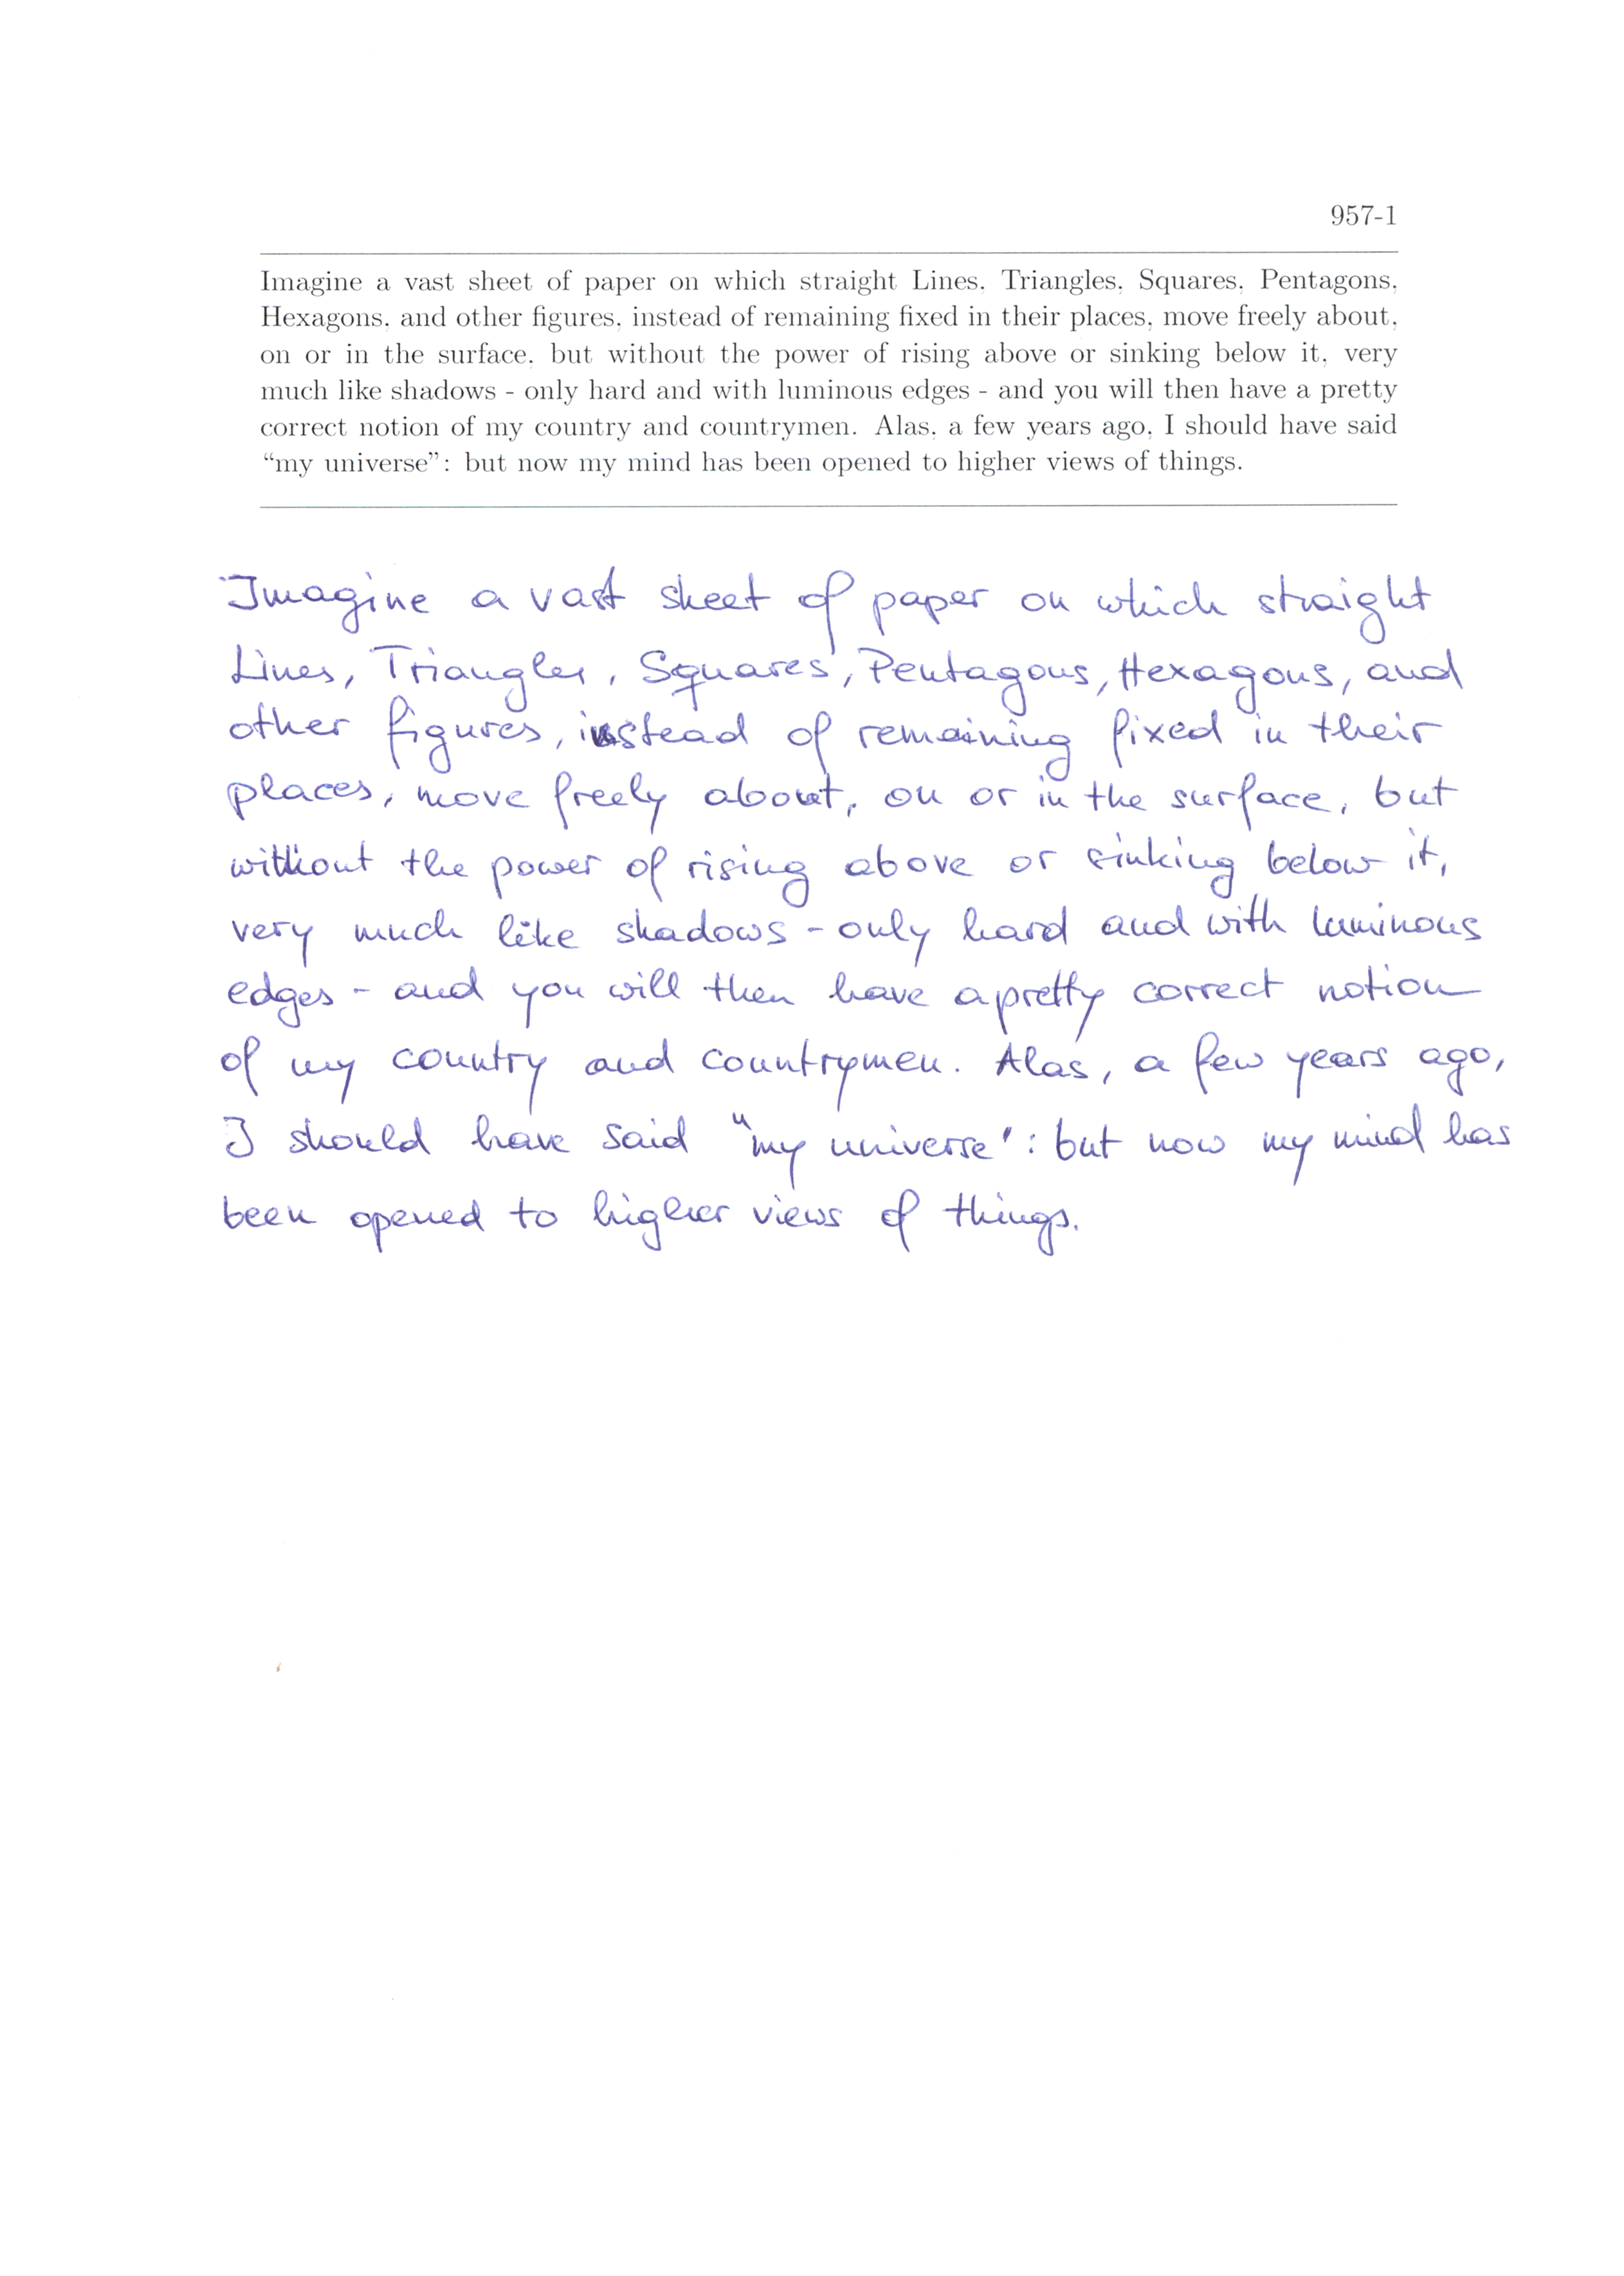 957-1
Imagine a vast sheet of paper on which straight Lines, Triangles, Squares, Pentagons,
Hexagons, and other figures, instead of remaining fixed in their places, move freely about,
on or in the surface, but without the power of rising above or sinking below it, very
much like shadows - only hard and with luminous edges - and you will then have a pretty
correct notion of my country and countrymen. Alas, a few years ago, I should have said
“my universe”: but now my mind has been opened to higher views of things.
Imagine a vast sheet of paper on which straight
Lines, Triangles, Squares, Pentagons, Hexagons, and
other figures, instead of remaining fixed in their
places, move freely about, on or in the surface, but
without the power of rising above or sinking below it,
very much like shadows - only hard and with luminous
edges - and you will then have a pretty correct notion
of my country and countrymen. Alas, a few years ago,
I should have said "my universe": but now my mind has
been opened to higher views of things.